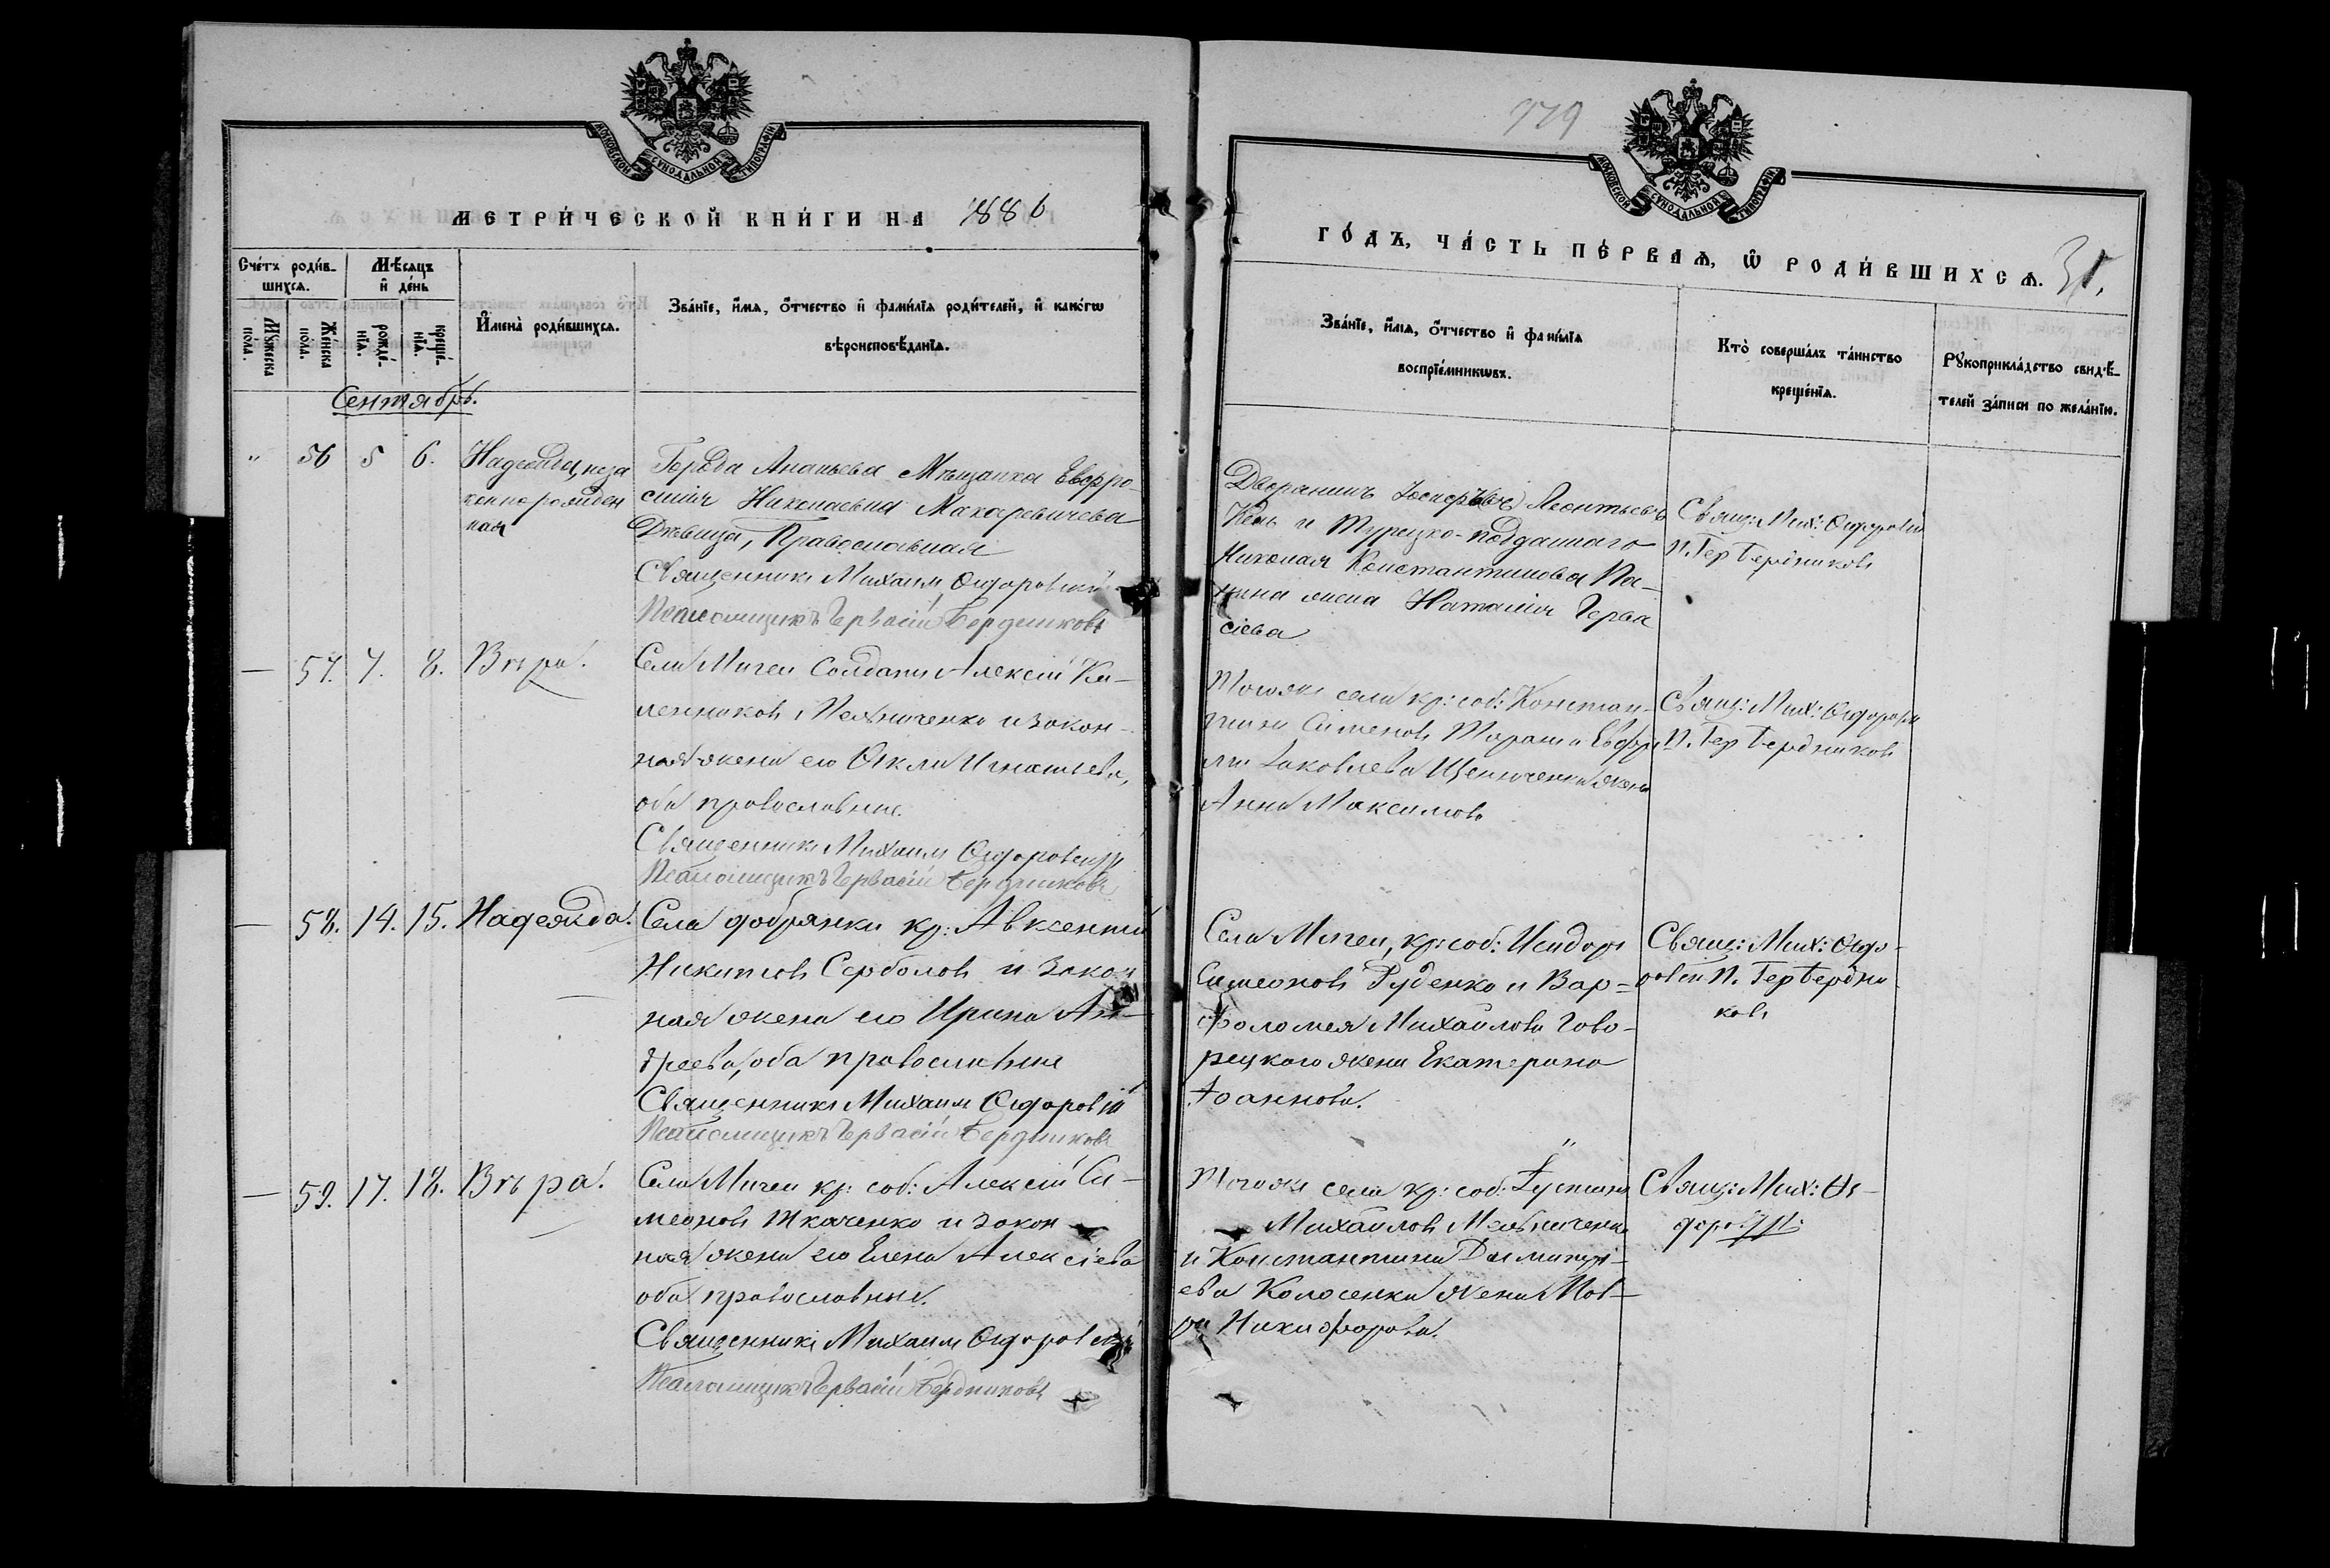 МОСКОВСКОЙ СѴНОДАЛЬНОЙ ТИПОГРАФІИ
МЕТРИ́ЧЕСКОЙ КНИ́ГИ НА 1886
Сче́тъ роди́в-
шихсѧ.
Мѣ́сѧцъ
и҆ де́нь
Мꙋ́жеска
по́ла.
Же́нска
по́ла.
рожде́-
нїѧ.
креще́-
нїѧ.
И҆мена̀ роди́вшихсѧ.
Зва́нїе, и҆́мѧ, ѻ҆́тчество и҆ фами́лїѧ роди́телей, и҆ како́гѡ
вѣроисповѣ́данїѧ.
Сентябрь.
" 56 5 6.
Надежда, неза
коннорожден
ная
Города Ананьева Мѣщанка Евфро-
синия Николаевна Макаревичева
Дѣвица, Православная
Священникъ Михаилъ Сидоровскій
Псаломщикъ Гервасій Бердниковъ
— 57. 7. 8. Вѣра.
Села Мигеи Солдатъ Алексій Ка-
ленниковъ Мельниченко и закон-
ная жена его Ѳекла Игнатьева,
оба православные.
Священникъ Михаилъ Сидоровскій
Псаломщикъ Гервасій Бердниковъ
— 58. 14. 15. Надежда.
Села Добрянки кр: Авксентій
Никитовъ Серболовъ и закон
ная жена его Ирина Ан-
дреева, оба православные
Священникъ Михаилъ Сидоровскій
Псаломщикъ Гервасій Бердниковъ
— 59. 17. 18. Вѣра.
Села Мигеи кр: соб: Алексій Си-
меоновъ Ткаченко и закон
ная жена его Елена Алексіева
оба православные.
Священникъ Михаилъ Сидоровскій
Псаломщикъ Гервасій Бердниковъ
МОСКОВСКОЙ СѴНОДАЛЬНОЙ ТИПОГРАФІИ
ГО́ДЪ, ЧА́СТЬ ПЕ́РВАѦ, Ѽ РОДИ́ВШИХСѦ.
Зва́нїе, и҆́мѧ, ѻ҆́тчество и҆ фами́лїѧ
воспрїе́мникѡвъ.
Кто̀ соверша́лъ та́инство
креще́нїѧ.
Рꙋкоприкла́дство свидѣ́-
телей за́писи по жела́нїю.
Дворянинъ Леонтьевъ
и Турецко-подданнаго
Николая Константинова Па-
жена Наталия Герва
сіева
Свящ: Мих: Сидоровскій
П. Гер Бердниковъ
Тогоже села кр: соб: Констан-
тинъ Сименовъ и
Іаковлева жена
Анна Максимова
Свящ: Мих: Сидоровскій
П. Гер Бердниковъ
Села Мигеи, кр: соб: Исидоръ
Симеоновъ Руденко и Вар=
фоломея Михайлова Гово-
рецкого жена Екатерина
Іоаннова.
Свящ: Мих: Сидо-
ровскій П. Гер Бердни
ковъ
Тогоже села кр: соб: Іустинъ
Михайловъ Мельниченко
и Константина Димитрі-
ева Колосенки жена Мав-
ра Никифорова.
Свящ: Мих: Си-
доровскій